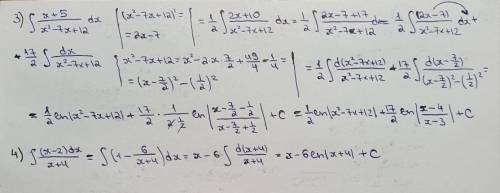 3) ∫ (x+5)/(x²-7x+12) dx | (x²-7x+12)' = = 2x-7 | = 1/2 ∫ (2x+10)/(x²-7x+12) dx = 1/2 ∫ (2x-7+17)/(x²-7x+12) dx = 1/2 ∫ (2x-7)/(x²-7x+12) dx +
+ 17/2 ∫ dx/(x²-7x+12) | x²-7x+12 = x²-2x·7/2+49/4-1/4 = = (x-7/2)²-(1/2)² | = 1/2 ∫ d(x²-7x+12)/(x²-7x+12) + 17/2 ∫ d(x-7/2)/((x-7/2)²-(1/2)²) =
= 1/2 ln|x²-7x+12| + 17/2 · 1/(2·1/2) ln |(x-7/2-1/2)/(x-7/2+1/2)| + C = 1/2 ln|x²-7x+12| + 17/2 ln |(x-4)/(x-3)| + C
4) ∫ (x-2)dx/(x+4) = ∫ (1 - 6/(x+4)) dx = x-6 ∫ d(x+4)/(x+4) = x-6 ln|x+4| + C